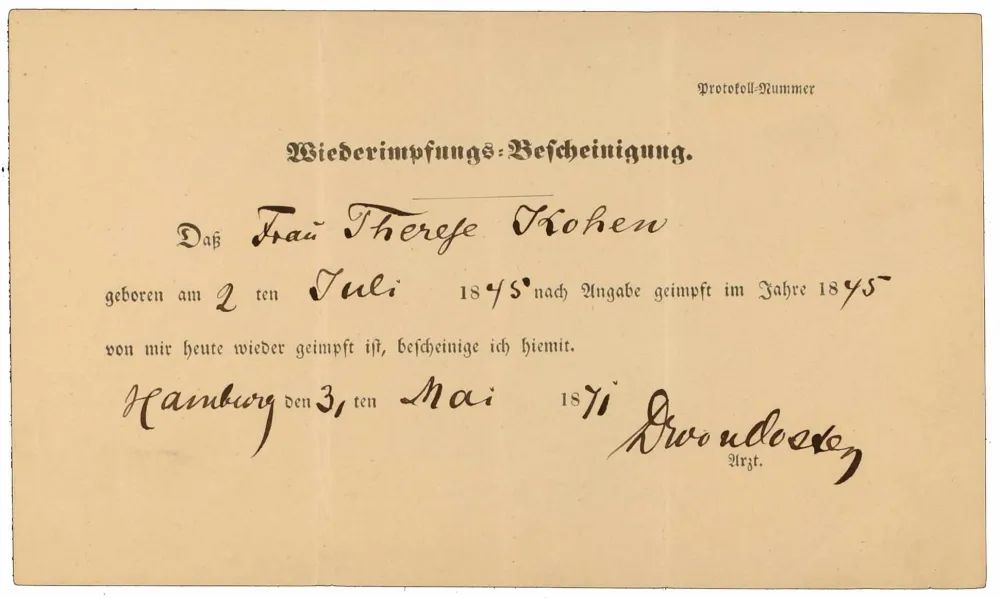 Protokoll-Nummer
Wiederimpfungs-Bescheinigung.
Daß Frau Therese Kohen
geboren am 2 ten Juli 1845 nach Angabe geimpft im Jahre 1845
von mir heute wieder geimpft ist, bescheinige ich hiemit.
Hamburg den 31 ten Mai 1871
Arzt.